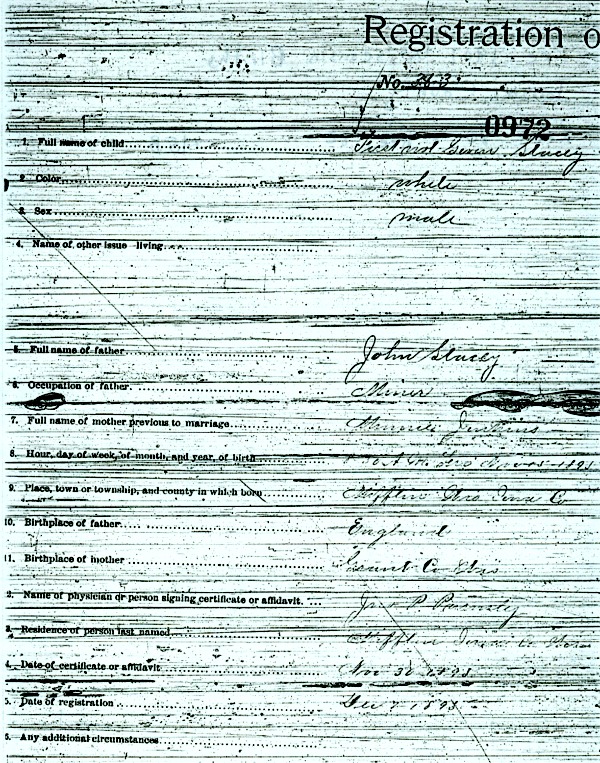 Registration o
No.
0972
1. Full name of child First not Given Stacey
2. Color white
3. Sex male
4. Name of other issue living
5. Full name of father John Stacey
6. Occupation of father Miner
7. Full name of mother previous to marriage Jenkins
8. Hour, day of week, of month, and year, of birth
9. Place, town or township, and county in which born Mifflin Iowa Co
10. Birthplace of father England
11. Birthplace of mother Grant Co Wis
2. Name of physician or person signing certificate or affidavit. P
3. Residence of person last named Mifflin Iowa Co
4. Date of certificate or affidavit Nov 30 1893
5. Date of registration Dec 7 1893
6. Any additional circumstances